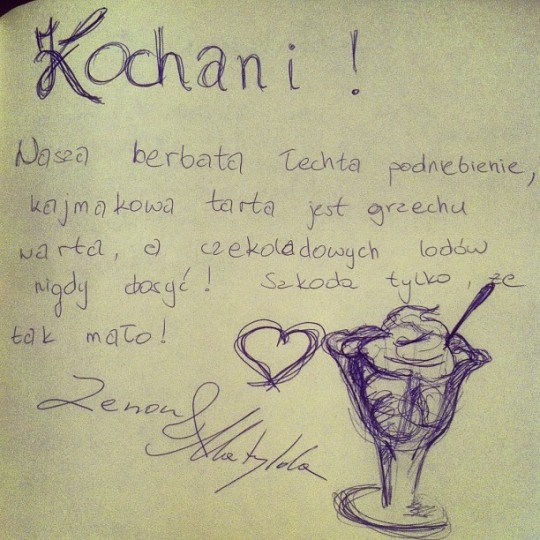 Kochani !
Nasza berbata łechta podniebienie,
kajmakowa tarta jest grzechu
warta, a czekoladowych lodów
nigdy dosyć! Szkoda tylko, że
tak mało!
Zenon & Matylda